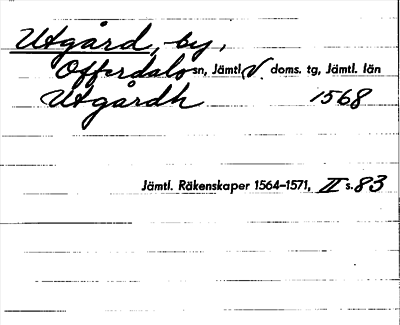 Utgård, by,
Offerdals sn, Jämtl. V. doms. tg, Jämtl. län
Utgårdh 1568
Jämtl. Räkenskaper 1564–1571, II s. 83